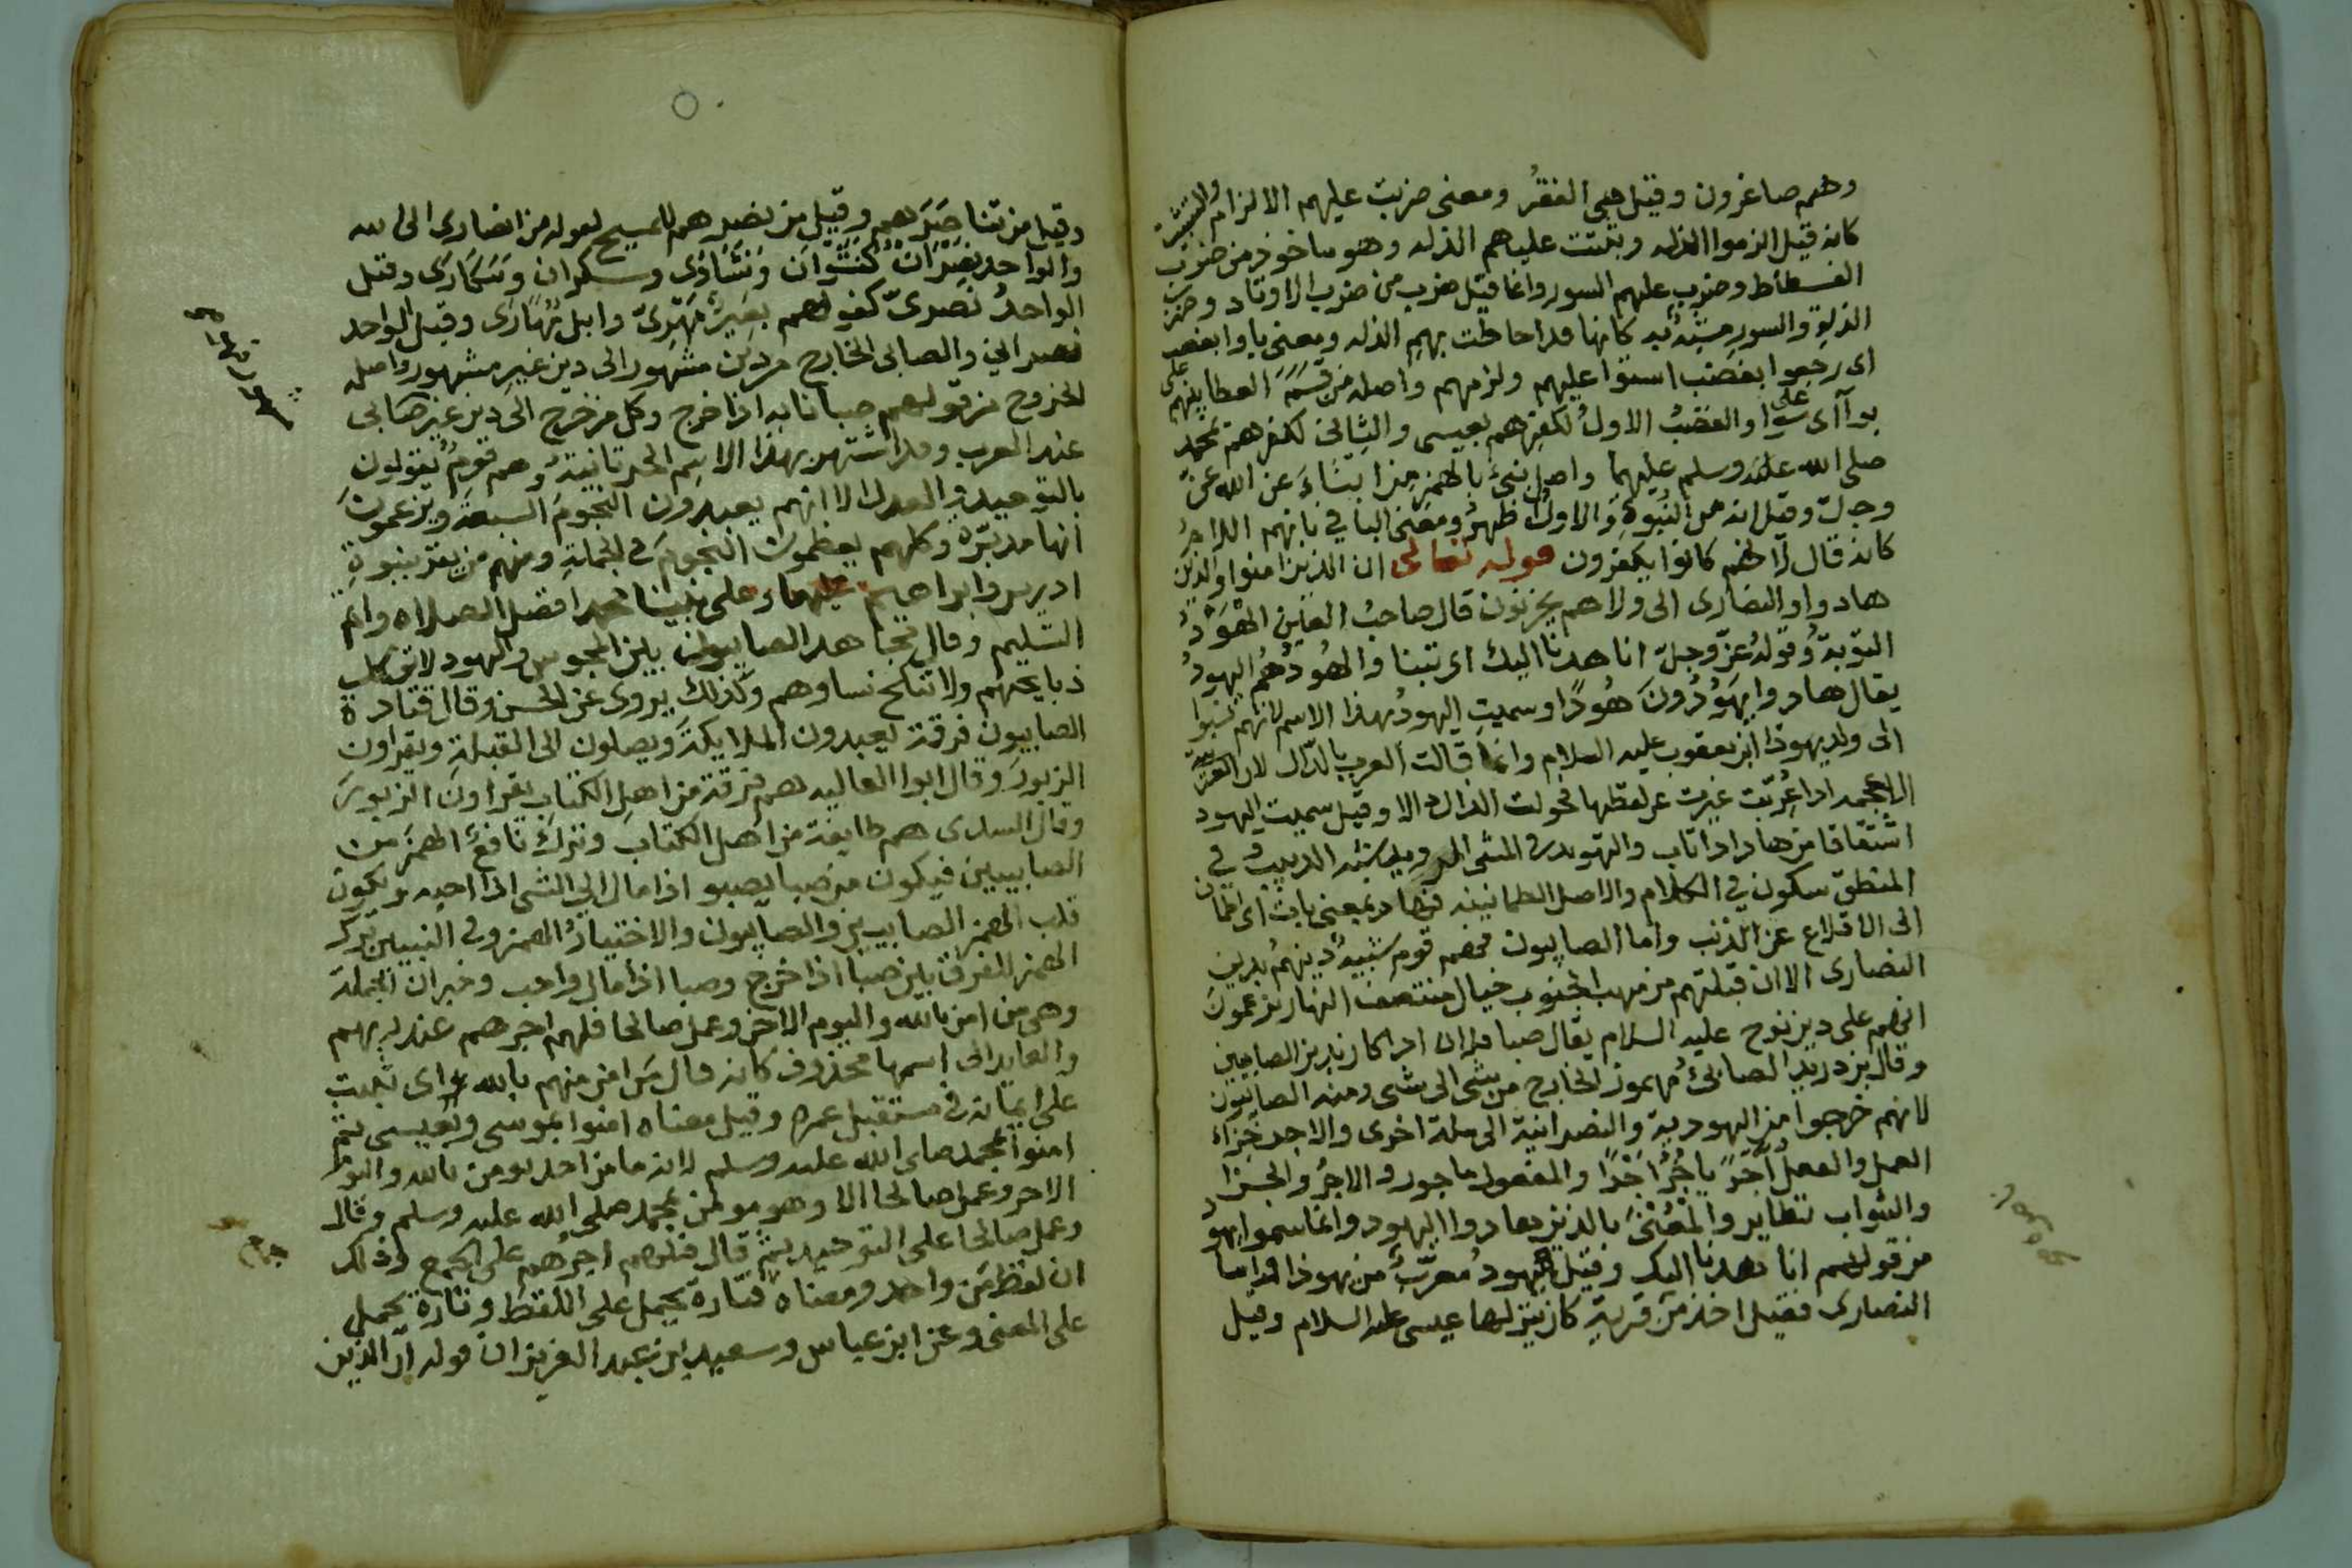 وهم صاغرون وقيل هي الفقرُ ومعنى ضربت عليهم الالزام والتثبيت
كانه قيل الزموا الذله وثبتت عليهم الذله وهو ماخوذ من ضرب
الفسطاط وضرب عليهم السور وانما قيل ضرب من ضرب الاوتاد وضرب
الذلةِ والسور مشبه به كانها قد احاطت بهم الذله ومعنى باوا بغضب
اى رجعوا بغضب استوا عليهم ولزمهم واصله من قسَمَ العطا بينهم على
بوآ اى على سوا والغضبُ الاولُ لكفرهم بعيسى والثانى لكفرهم بمحمد
صلى الله عليه وسلم عليهما واصل نبئ بالهمز من انبَاءَ عن الله عزّ
وجلّ وقيل انه من النُبوةِ والاولُ ظهرُ ومعنى البا في بانهم اللامُ
كانه قال لانهم كانوا يكفرون قوله تعالى ان الذين امنوا والذين
هادوا والنصارى الى ولاهم يحزنون قال صاحبُ العين الهَوْدُ
التوبةُ وقولهُ عزّ وجلّ انا هدنا اليك اى تبنا والهُودُ هُمُ اليهودُ
يقال هادوا يهَوُدُونَ هُودًا وسميت اليهودُ بهذا الاسم لانهم نسبوا
الى ولد يهوذا ابن يعقوب عليه السلام وانما قالت العرب بالدّال لان العربية
الاعجميه اذا عُرّبت غيرت عن لفظها فحولت الذال دالا وقيل سميت اليهود
اشتقاقا من هاد اذا تاب والتهويد فى المشى شبه الدبيب وفى
المنطق سكون في الكلام والاصل الطمانينه فهاد بمعنى تاب اى اطمان
الى الاقلاع عن الذنب واما الصابيون فهم قوم شبيهٌ دينهُم بدين
النصارى الا ان قبلتهم من مهب الجنوب خيال منتصف النهار يزعمون
انهم على دين نوح عليه السلام يقال صبا فلان اذا كان يدين الصابيين
وقال ابن دريد الصابئُ مهموز الخارج من شى الى شى ومنه الصابيون
لانهم خرجوا من اليهودية والنصرانية الى ملة اخرى والاجر جزاء
العمل والفعل أجَرَ ياجُرُ اجْرًا والمفعول ماجور والاجرُ والجزا
والثواب نظاير والمَعْنىَ بالذين هادوا اليهود وانما سموا يهود
من قولهم انا هدنا اليك وقيل اليهودُ مُعرّبٌ من يهوذا واما
النصارى فقيل اخذ من قريةٍ كان ينزلها عيسى عليه السلام وقيل
وقيل من تناصَرَهم وقيل من نصرهم للمسيح لقوله من انصارى الى الله
والواحد نصران كنَشْوَان ونَشَاوَى وسكران وسَكَارَى وقيل
الواحدُ نصرىّ كقولهم بعيرٌ مَهْرِىّ وابل مَهَارَى وقيل الواحد
نصرانى والصابى الخارج من دين مشهور الى دين غير مشهور واصله
الخروج من قولهم صبا نابه اذا خرج وكل من خرج الى دين غير صابى
عند العرب وقد اشتهر بهذا الاسم الحرنانيةُ وهم قومٌ يقولون
بالتوحيد والعدل الا انهم يعبدون النجومَ السبعةَ ويزعمونَ
انها مدبّره وكلهم يعظمون النجومَ فى الجملةِ ومنهم من يقرُ بنبوةِ
ادريس وابراهيم عليهما وعلى نبينا محمد افضل الصلاه واتم
التسليم وقال مجاهد الصابيون بين المجوس واليهود لا توكل
ذبايحهم ولا تنكح نساوهم وكذلك يروى عن الحسن وقال قتادة
الصابيون فرقة تعبدون الملايكةَ ويصلون الى القبلةِ ويقراون
الزبورَ وقال ابوا العاليه هم فرقة من اهل الكتاب يقراونَ الزبورَ
وقال السدى هم طايفة من اهل الكتاب وتركَ نافعٌ الهمزَ من
الصابيين فيكون من صَبا يصبو اذا مال الى الشى اذا احبه ويكون
قلب الهمز الصابيين والصابيون والاختيارُ الهمز وفى النبيين ترك
الهمز للفرق بين صبا اذا خرج وصبا اذا مال واحب وخبر ان الجملة
وهى من امن بالله واليوم الاخر وعمل صالحا فلهم اجرهم عند ربهم
والعايد الى اسمها محذوف كانه قال مَن امن منهم بالله اى ثبت
على ايمانه فى مستقبل عمره وقيل معناه امنوا بموسى وبعيسى ثم
امنوا بمحمد صلى الله عليه وسلم لانه ما من احد يومن بالله واليوم
الاخر وعمل صالحا الا وهو مومن بمحمد صلى الله عليه وسلم وقال
وعمل صالحا على التوحيد ثم قال فلهم اجرُهم على الجمع وذلك
ان لفظَ مَن واحد ومعناه فتارة يحمل على اللفظ وتارة يحمل
على المعنى وعن ابن عباس وسعيد ابن عبد العزيز ان قوله انّ الذين